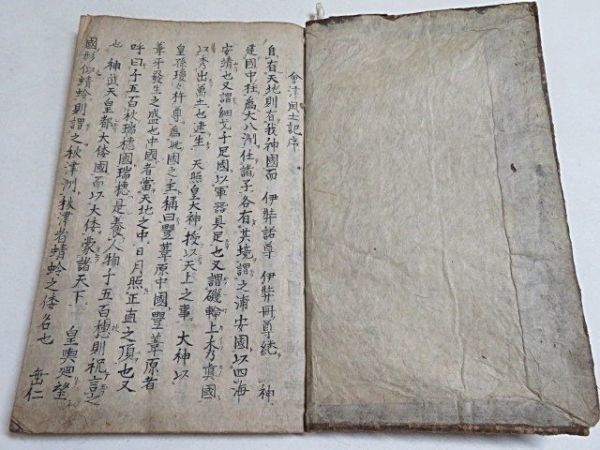 會津風土記序
自有天地則有我神國而 伊弉諾尊 伊弉冊尊継 神
建國中柱爲大八洲任諸子各有其境謂之浦安國以四海
安靖也又謂細戈千足國以軍器具足也又謂磯輪上秀眞國
以秀出萬土也建生 天照皇大神授以天上之事 大神以
皇孫瓊々杵尊爲此國之主稱曰豐葦原中國豐葦原者
葦牙發生之盛也中國者當天地之中日月照正直之頂也又
呼曰千五百秋瑞穂國瑞穂是養人物千五百穂則祝言之
也 神武天皇都大倭國而以大倭蒙諸天下 皇輿廻望
國形似蜻蛉則謂之秋津洲秋津者蜻蛉之倭名也 垂仁